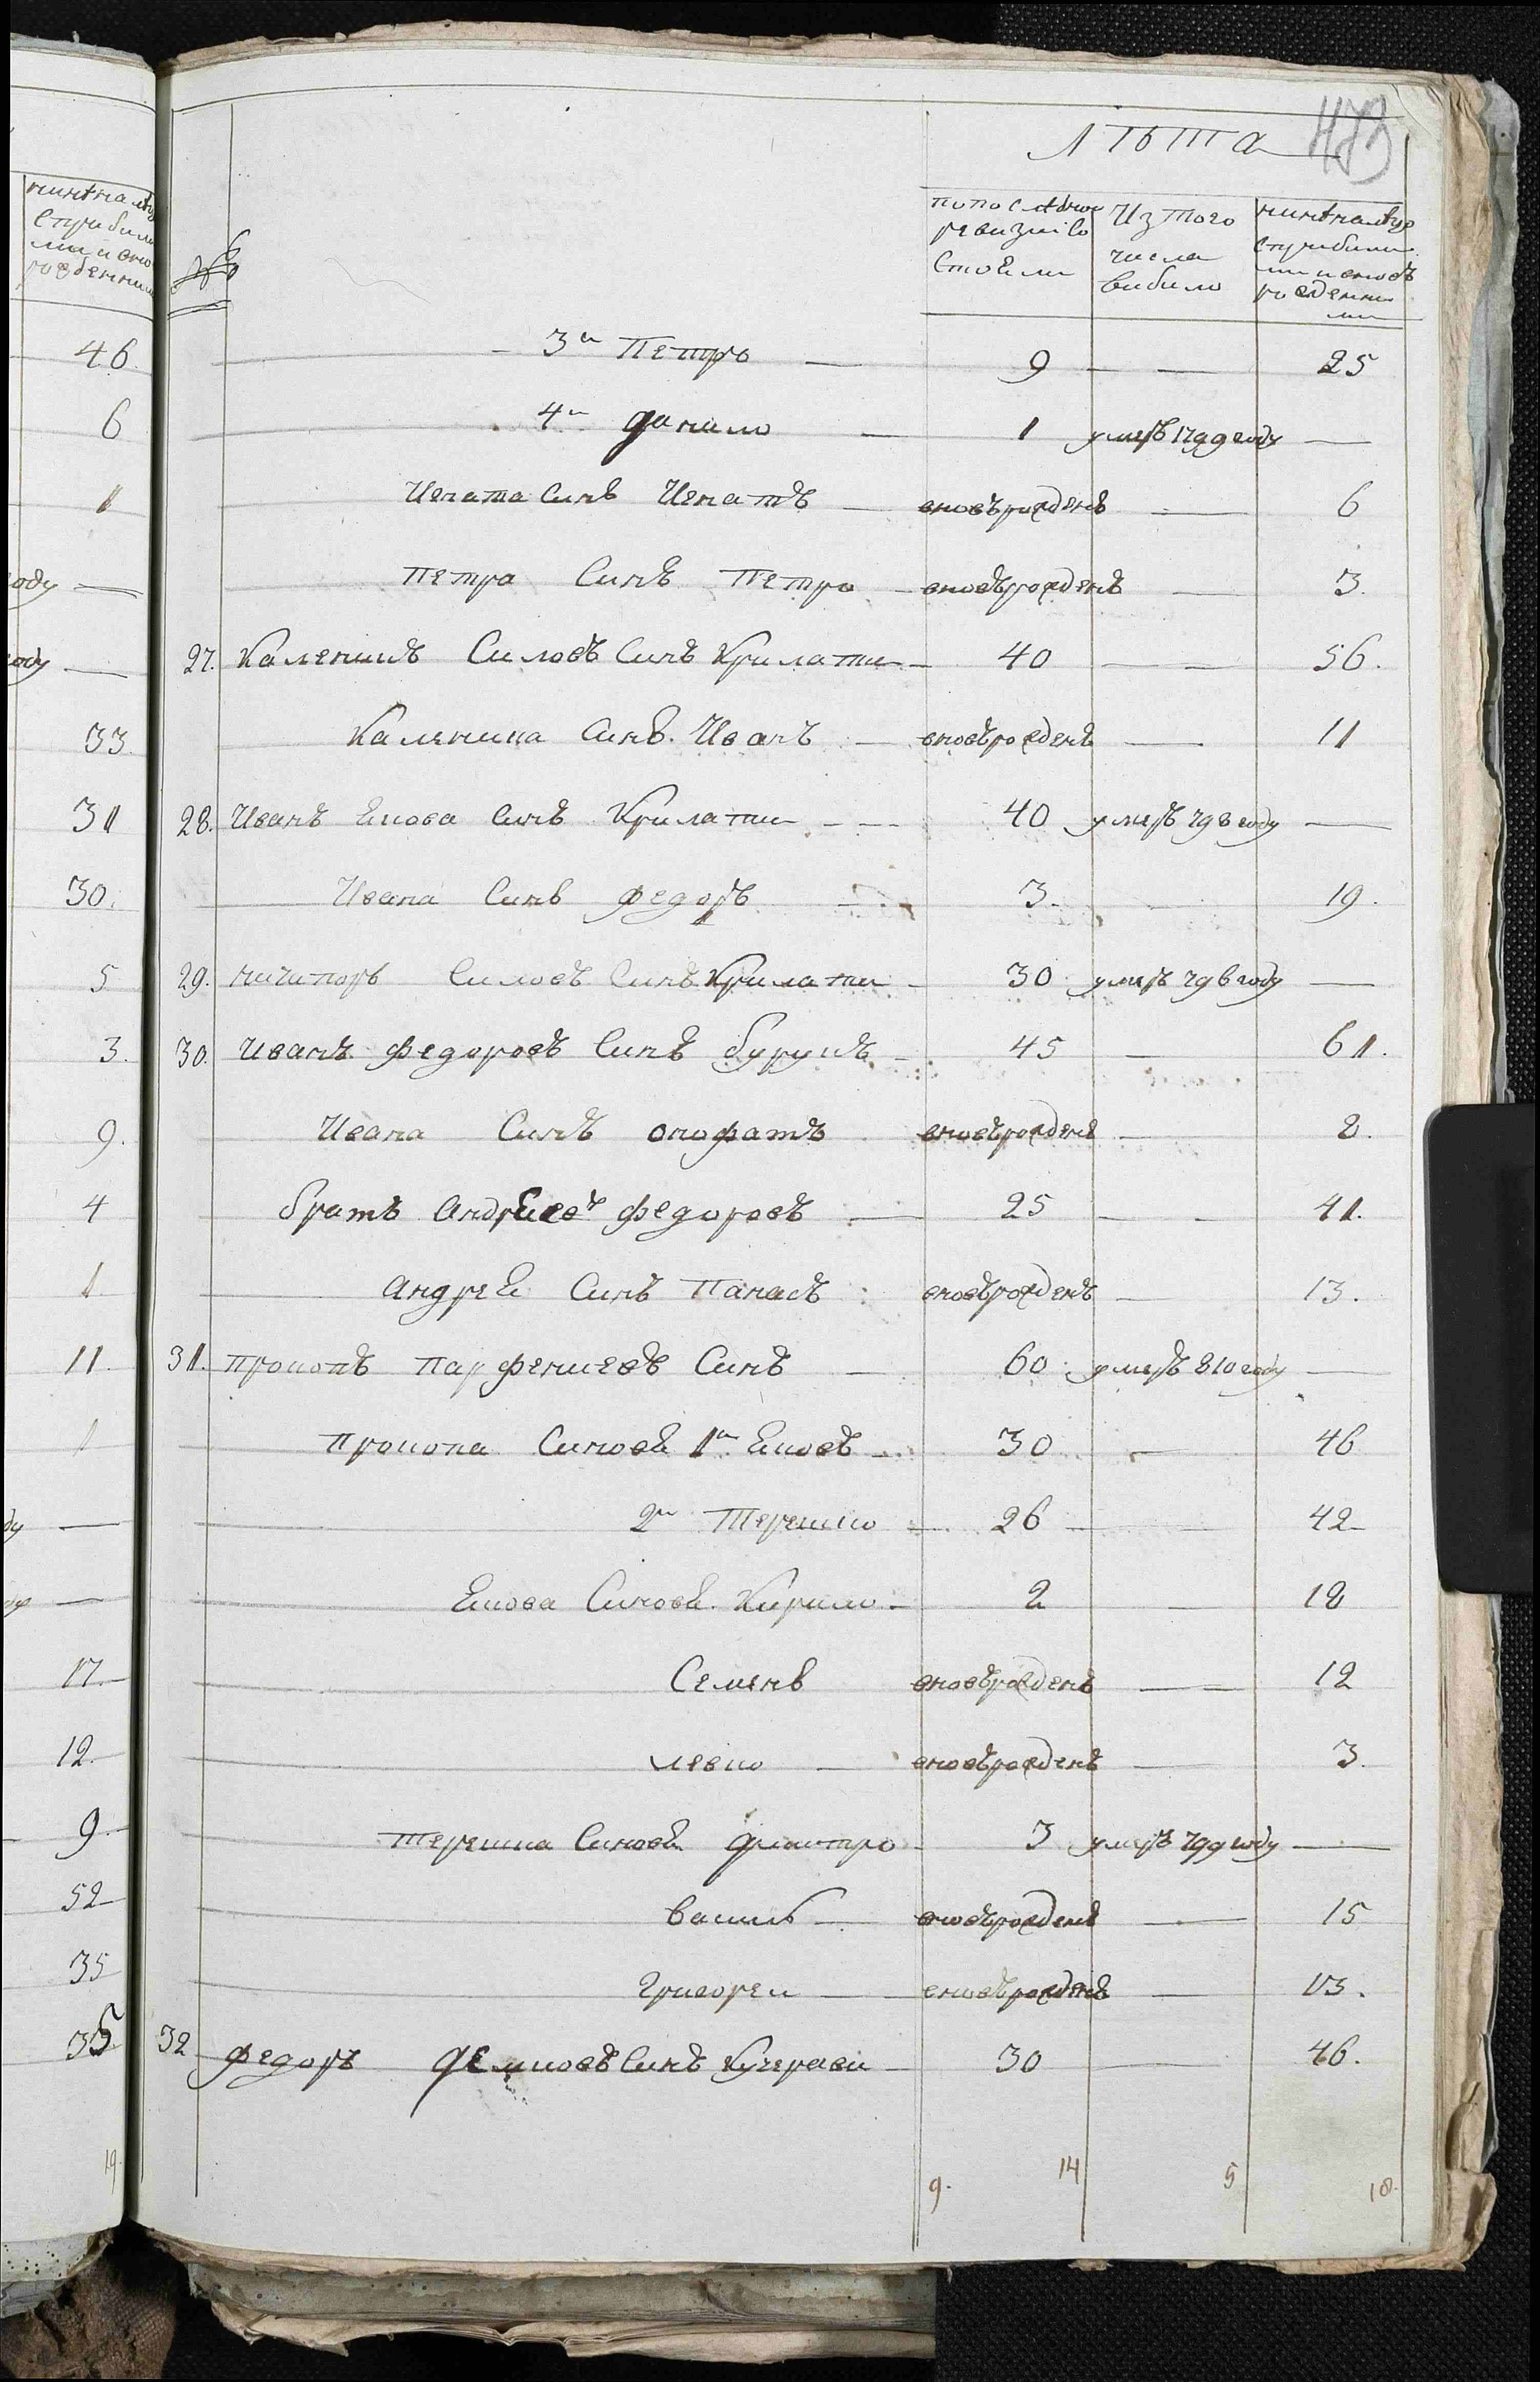 нинѣ на лѣцо
с прибили
ми и вно
рожденни
46.
6
1
году —
году —
33.
31
30.
5
3.
9.
4
1
11.
1
ду —
17.
12.
9.
52
35
35
19
лѣта 473
№
по последнои ревизии состояли
Из того числа вибило
нинѣ на лѣцо с прибили ми и вновъ рожденни ми
3й Петро — 9 — — 25
4й Данило — 1 умеръ 1799 году —
Игната синъ Игнатъ — вновърожденъ — 6
Петра Синъ Петро — вновърожденъ — 3.
27. Каленикъ Силовъ Синъ Крилати — 40 — — 56.
Каленика Синъ Иванъ — вновърожденъ — 11
28. Иванъ Якова Синъ Крилати — — 40 умеръ 798 году —
Ивана Синъ Федоръ — 3. — 19.
29. Ничипоръ Силовъ Синъ Крилати — 30 умеръ 796 году —
30. Иванъ Федоровъ Синъ Бурункъ — 45 — 61.
Ивана Синъ Онофатъ вновърожденъ — 8.
братъ Андреевъ Федоровъ — 25 — — 41.
Андрей Синъ Панасъ вновърожденъ — 13.
31. Прокопъ Парфениевъ Синъ — 60 умеръ 810 году —
Прокопа Синовя 1й Яковъ — 30 — 46
2й Терешко — 26 — — 42
Якова Синовя Кирило — 2 — 18
Семенъ вновърожденъ — 12
Левко — вновърожденъ — 3.
Терешка Синовя Дмитро — 3 умеръ 799 году —
Василь — вновърожденъ — 15
Григореи — вновърожденъ — 13.
32 Федоръ Демковъ Синъ Кучерави — 30 — 46.
9. 14 5 18.